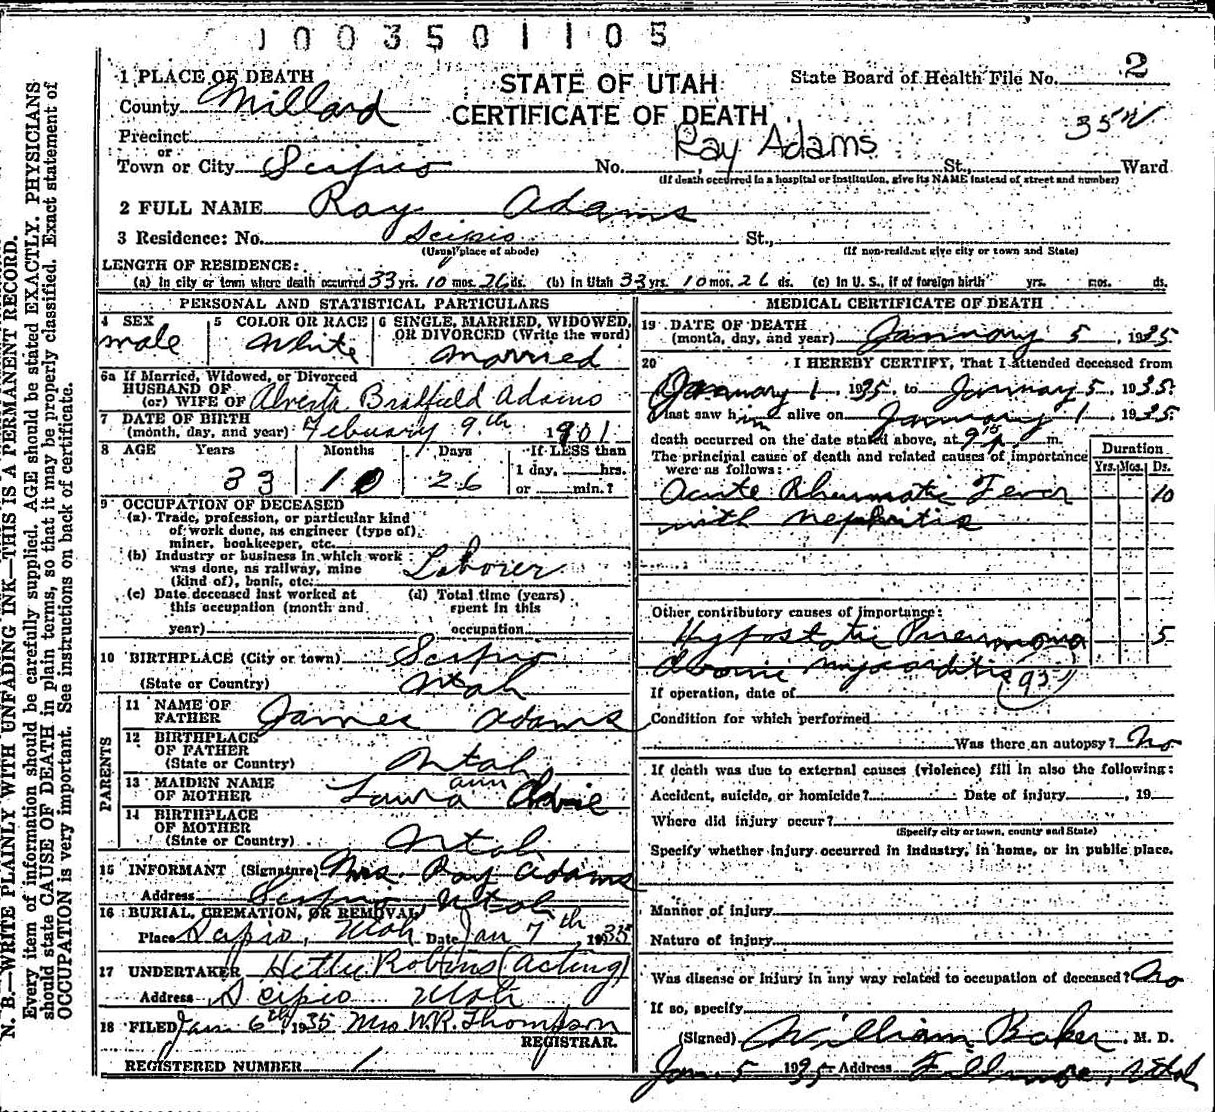 1003501105
1 PLACE OF DEATH
STATE OF UTAH
CERTIFICATE OF DEATH
State Board of Health File No. 2
County Millard
Precinct
or
Town or City Scipio No. St., Ward
Ray Adams
(If death occurred in a hospital or institution, give its NAME instead of street and number)
2 FULL NAME Ray Adams
3 Residence: No. Scipio St.,
(Usual place of abode) (If non-resident give city or town and State)
LENGTH OF RESIDENCE:
(a) In city or town where death occurred 33 yrs. 10 mos. 26 ds. (b) In Utah 33 yrs. 10 mos. 26 ds. (c) In U. S., if of foreign birth yrs. mos. ds.
PERSONAL AND STATISTICAL PARTICULARS
4 SEX
male
5 COLOR OR RACE
White
6 SINGLE, MARRIED, WIDOWED,
OR DIVORCED (Write the word)
married
6a If Married, Widowed, or Divorced
HUSBAND OF
(or) WIFE OF Alvesta Bradfield Adams
7 DATE OF BIRTH
(month, day, and year) Febuary 9th 1901
8 AGE Years Months Days If LESS than
33 10 26 1 day, hrs.
or min.?
9 OCCUPATION OF DECEASED
(a) Trade, profession, or particular kind
of work done, as engineer (type of),
miner, bookkeeper, etc.
(b) Industry or business in which work
was done, as railway, mine
(kind of), bank, etc.
Laborer
(c) Date deceased last worked at
this occupation (month and
year)
(d) Total time (years)
spent in this
occupation
10 BIRTHPLACE (City or town) Scipio
(State or Country) Utah
PARENTS
11 NAME OF
FATHER James Adams
12 BIRTHPLACE
OF FATHER
(State or Country) Utah
13 MAIDEN NAME
OF MOTHER Laura ann
14 BIRTHPLACE
OF MOTHER
(State or Country) Utah
15 INFORMANT (Signature) Mrs. Ray Adams
Address Scipio Utah
16 BURIAL, CREMATION, OR REMOVAL
Place Scipio, Utah Date Jan 7th 1935
17 UNDERTAKER Hettie Robins (acting)
Address Scipio Utah
18 FILED Jan 6th 1935 Mrs W.R. Thompson
REGISTRAR.
REGISTERED NUMBER 1
MEDICAL CERTIFICATE OF DEATH
19 DATE OF DEATH
(month, day, and year) January 5, 1935
20 I HEREBY CERTIFY, That I attended deceased from
January 1 1935 to January 5, 1935.
I last saw him alive on January 1, 1935
death occurred on the date stated above, at m.
The principal cause of death and related causes of importance
were as follows:
Duration
Yrs. Mos. Ds.
Acute Rheumatic Fever 10
with nephritis
Other contributory causes of importance:
Hypostatic Pneumona 5
chronic myocarditis
93
If operation, date of
Condition for which performed
Was there an autopsy? No
If death was due to external causes (violence) fill in also the following:
Accident, suicide, or homicide? Date of injury , 19
Where did injury occur?
(Specify city or town, county and State)
Specify whether injury occurred in industry, in home, or in public place.
Manner of injury
Nature of injury
Was disease or injury in any way related to occupation of deceased? No
If so, specify
(Signed) William Baker, M. D.
Jan. 5 1935 Address Fillmore, Utah
N. B.—WRITE PLAINLY WITH UNFADING INK—THIS IS A PERMANENT RECORD.
Every item of information should be carefully supplied. AGE should be stated EXACTLY. PHYSICIANS
should state CAUSE OF DEATH in plain terms, so that it may be properly classified. Exact statement of
OCCUPATION is very important. See instructions on back of certificate.